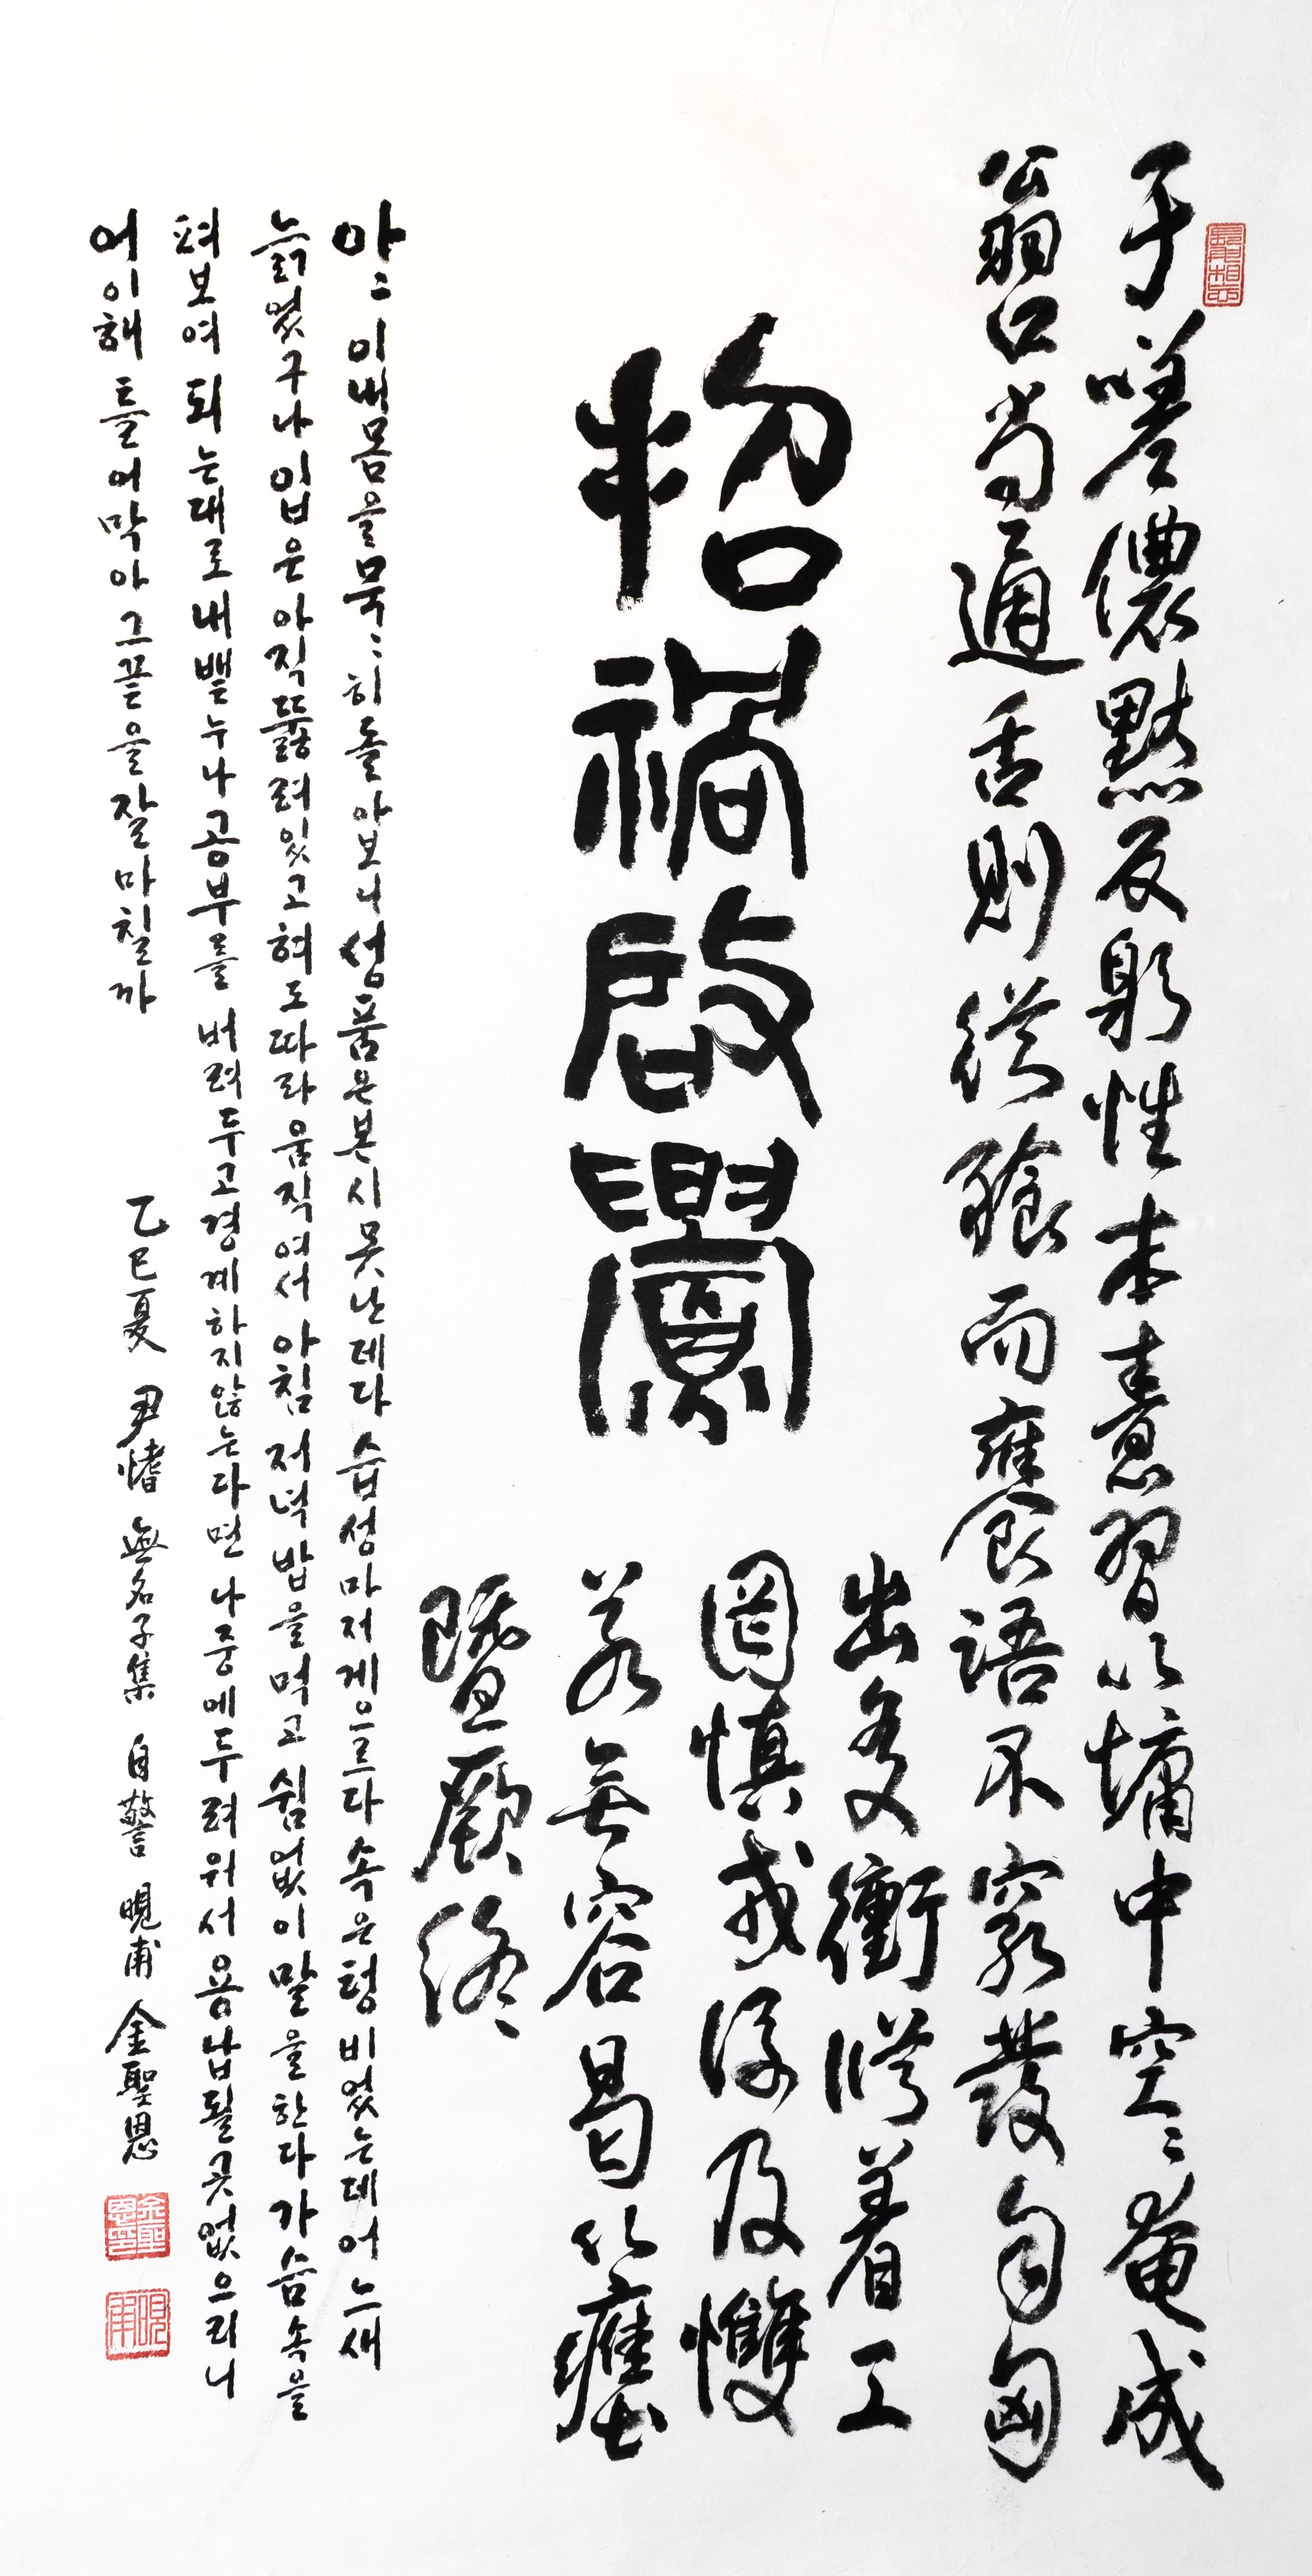 于嗟儂黙反躬性本憃習以慵中空〻奄成
翁口尚通舌則從飱而饔語不窮發匈
出多衝修着工
罔慎戒後及㦼
若無容曷以壅
曁厥終
招禍啓釁
아〻 이내몸을묵〻히돌아보니성품은본시못난데다 습성마저게으르다 속은텅비었는데어느새
늙었구나 입은아직뚫려있고혀도따라움직여서 아침저녁밥을먹고쉼없이말을한다 가슴속을
펴보여 되는대로내뱉누나 공부를 버려두고경계하지않는다면 나중에두려워서 용납될곳없으리니
어이해 틀어막아 그끝을잘마칠까
乙巳夏 尹愭 無名子集 自警 晛甫 金聖恩